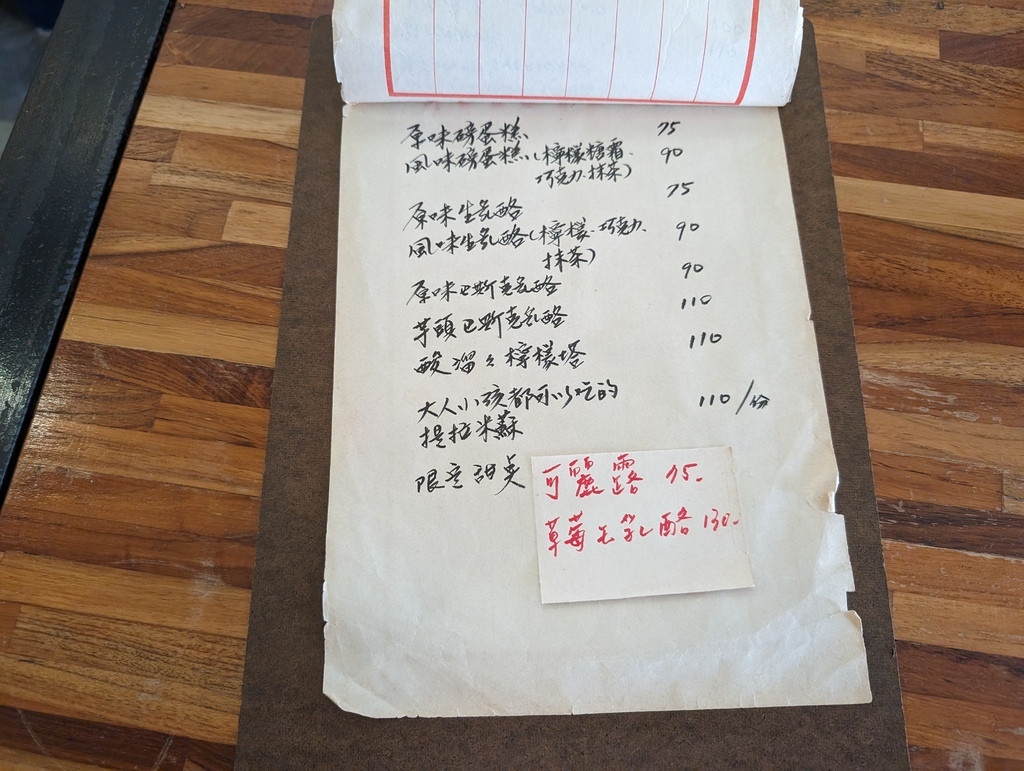 原味磅蛋糕 75
風味磅蛋糕(檸檬糖霜. 90
巧克力.抹茶)
原味生乳酪 75
風味生乳酪(檸檬.巧克力. 90
抹茶)
原味巴斯克乳酪 90
芋頭巴斯克乳酪 110
酸溜々檸檬塔 110
大人小孩都可以吃的 110/份
提拉米蘇
限定甜点
可麗露 75-
草莓生乳酪 130-